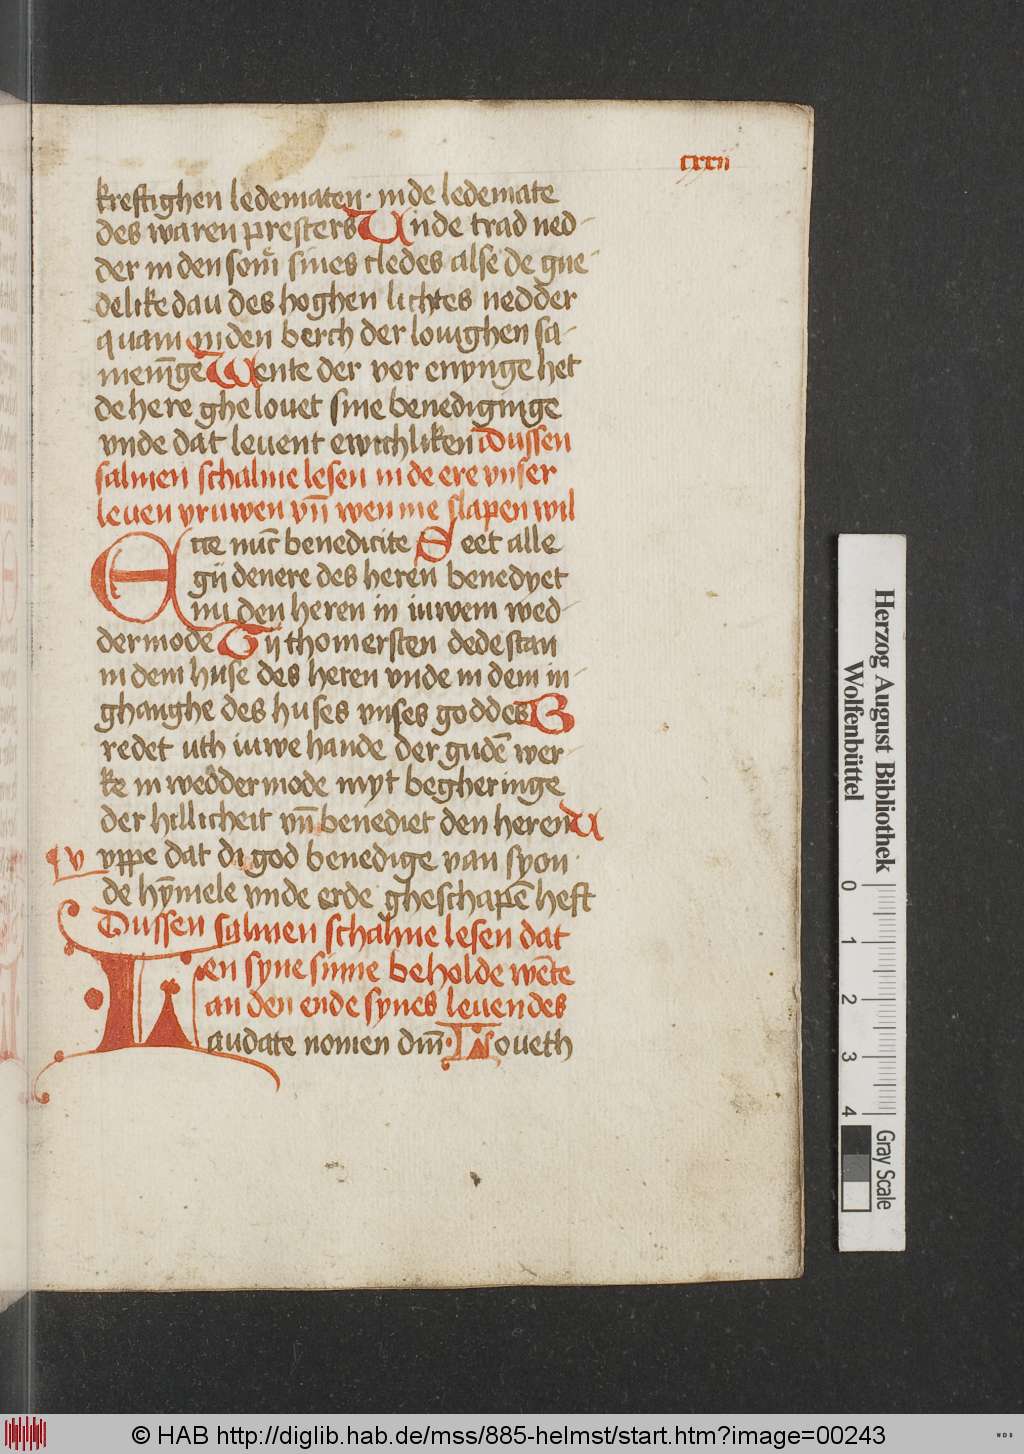 cxxii
kreftighen ledematen · in de ledemate
des waren presters Unde trad ned-
der in den som̄ sines cledes alse de gne-
delike dau des hoghen lichtes nedder
quam in den berch der louighen sa-
meni̅ge Wente der vor enynge het
de here ghelouet sine benediginge
vnde dat leuent ewichliken Dussen
salmen schalme lesen in de ere vnser
leuen vruwen vn̄ wen me slapen wil
Ecce nu̅c benedicite Seet alle
gij denere des heren benedyet
nu den heren in iuwem wed-
dermode Gij thomersten dede stan
in dem huse des heren vnde in dem in-
ghanghe des huses vnses goddes B
redet uth iuwe hande der gude̅ wer-
ke in weddermode myt begheringe
der hillicheit vn̄ benediet den heren U
vppe dat di god benedige van syon ·
de hy̅mele vnde erde gheschape̅ heft
Dussen salmen schalme lesen dat
en syne sinne beholde we̅te
an den ende synes leuendes
Laudate nomen dm̄ · Loueth
Herzog August Bibliothek
Wolfenbüttel
0 1 2 3 4
Gray Scale
© HAB http://diglib.hab.de/mss/885-helmst/start.htm?image=00243
WDB